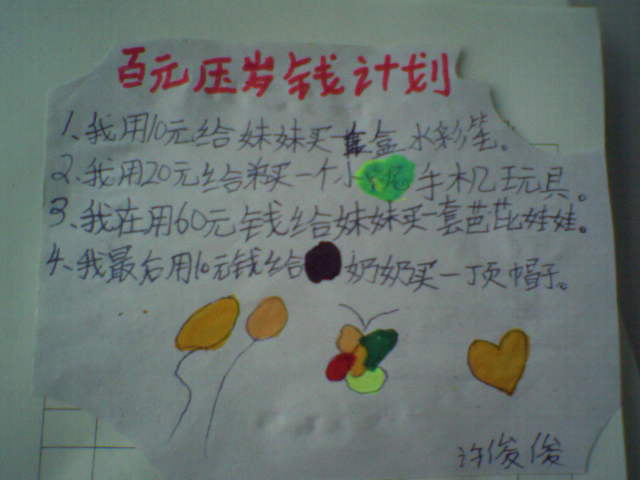 百元压岁钱计划
1、我用10元给妹妹买一盒水彩笔。
2、我用20元给弟买一个小手机玩具。
3、我在用60元钱给妹妹买一套芭芘娃娃。
4、我最后用10元钱给奶奶买一顶帽子。
许俊俊